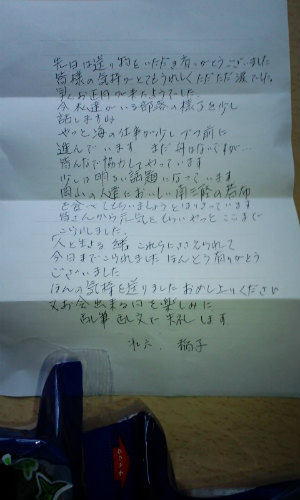 先日は送り物をいただき有りがとうございました
皆様の気持がとてもうれしくただただ涙でした。
早くお正月が来たようでした。
今私達がいる部落の様子を少し
話しますね
やっと海の仕事が少しづつ前に
進んでいます まだ舟はないですが…
皆んなで協力してやっています
少しは明るい話題になっています
岡山の人達においしい南三陸の若布
を食べてもらいましょうとはりきっています
皆さんから元気をもらいやっとここまで
こられました。
「人と生きる絆 これらにささえられて
今日までこられました ほんとう有りがとう
ございました
ほんの気持を送りました おめし上りください
又お会出来る日を楽しみに
乱筆乱文で失礼します
稲子